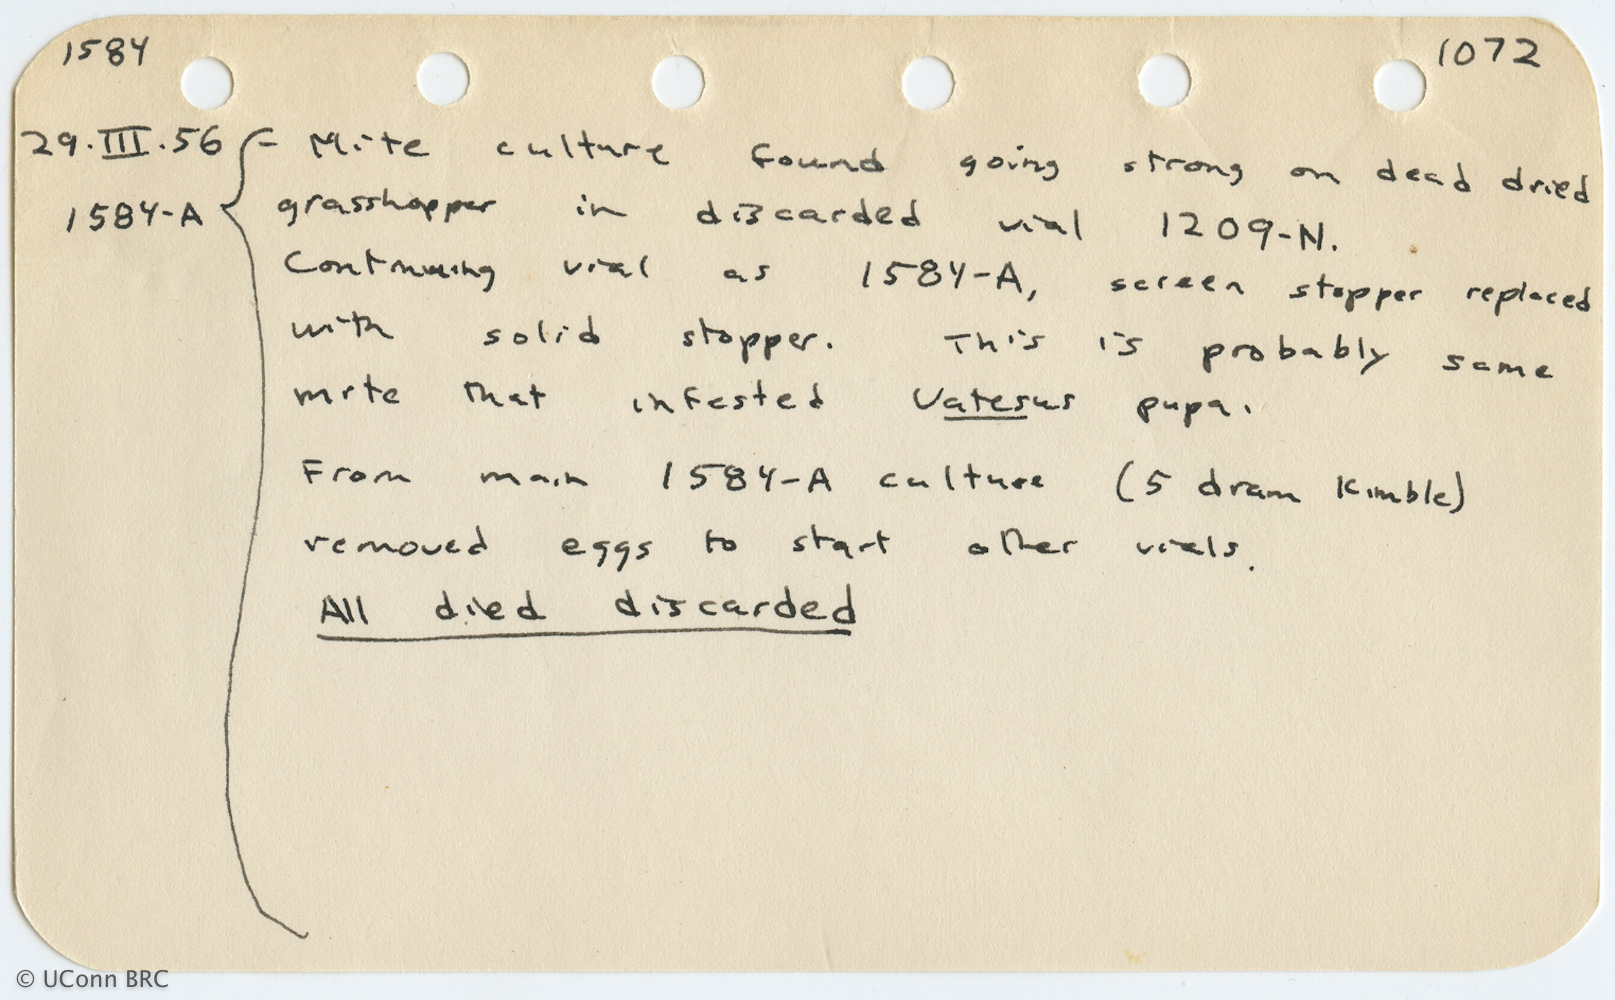 1584 1072
29.III.56 - Mite culture found going strong on dead dried
1584-A grasshopper in discarded vial 1209-N.
Continuing vial as 1584-A, screen stopper replaced
with solid stopper. This is probably same
mite that infested Vatesus pupa.
From main 1584-A culture (5 dram Kimble)
removed eggs to start other vials.
All died discarded
© UConn BRC